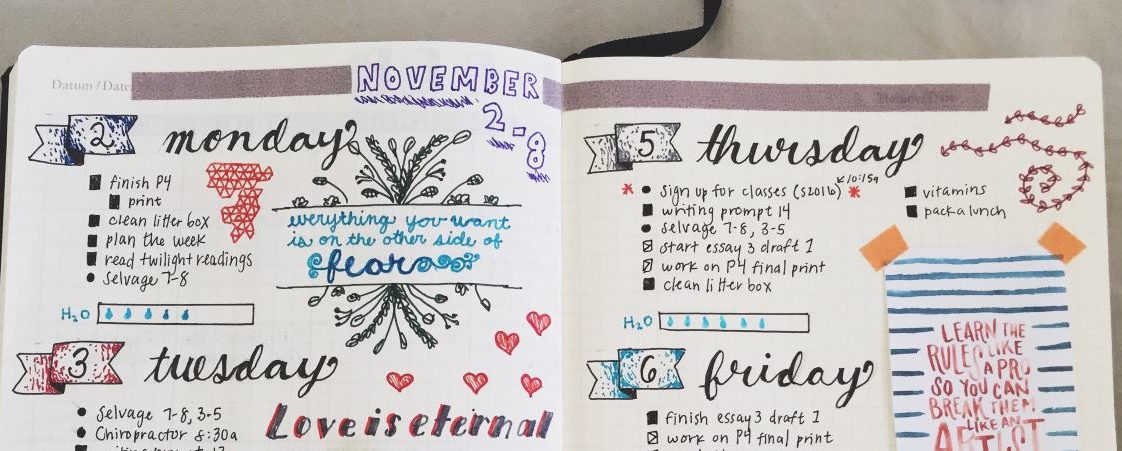 Datum / Date:
NOVEMBER
2-8
2 monday
finish P4
print
clean litter box
plan the week
read twilight readings
Selvage 7-8
H2O
everything you want
is on the other side of
fear
3 tuesday
Selvage 7-8, 3-5
Chiropractor 8:30a
Love is eternal
5 thursday
* Sign up for classes (S2016) 10:15a *
writing prompt 14
selvage 7-8, 3-5
start essay 3 draft 1
work on P4 final print
clean litter box
vitamins
pack a lunch
H2O
6 friday
finish essay 3 draft 1
work on P4 final print
LEARN THE
RULES LIKE
A PRO
SO YOU CAN
BREAK THEM
LIKE AN
ARTIST